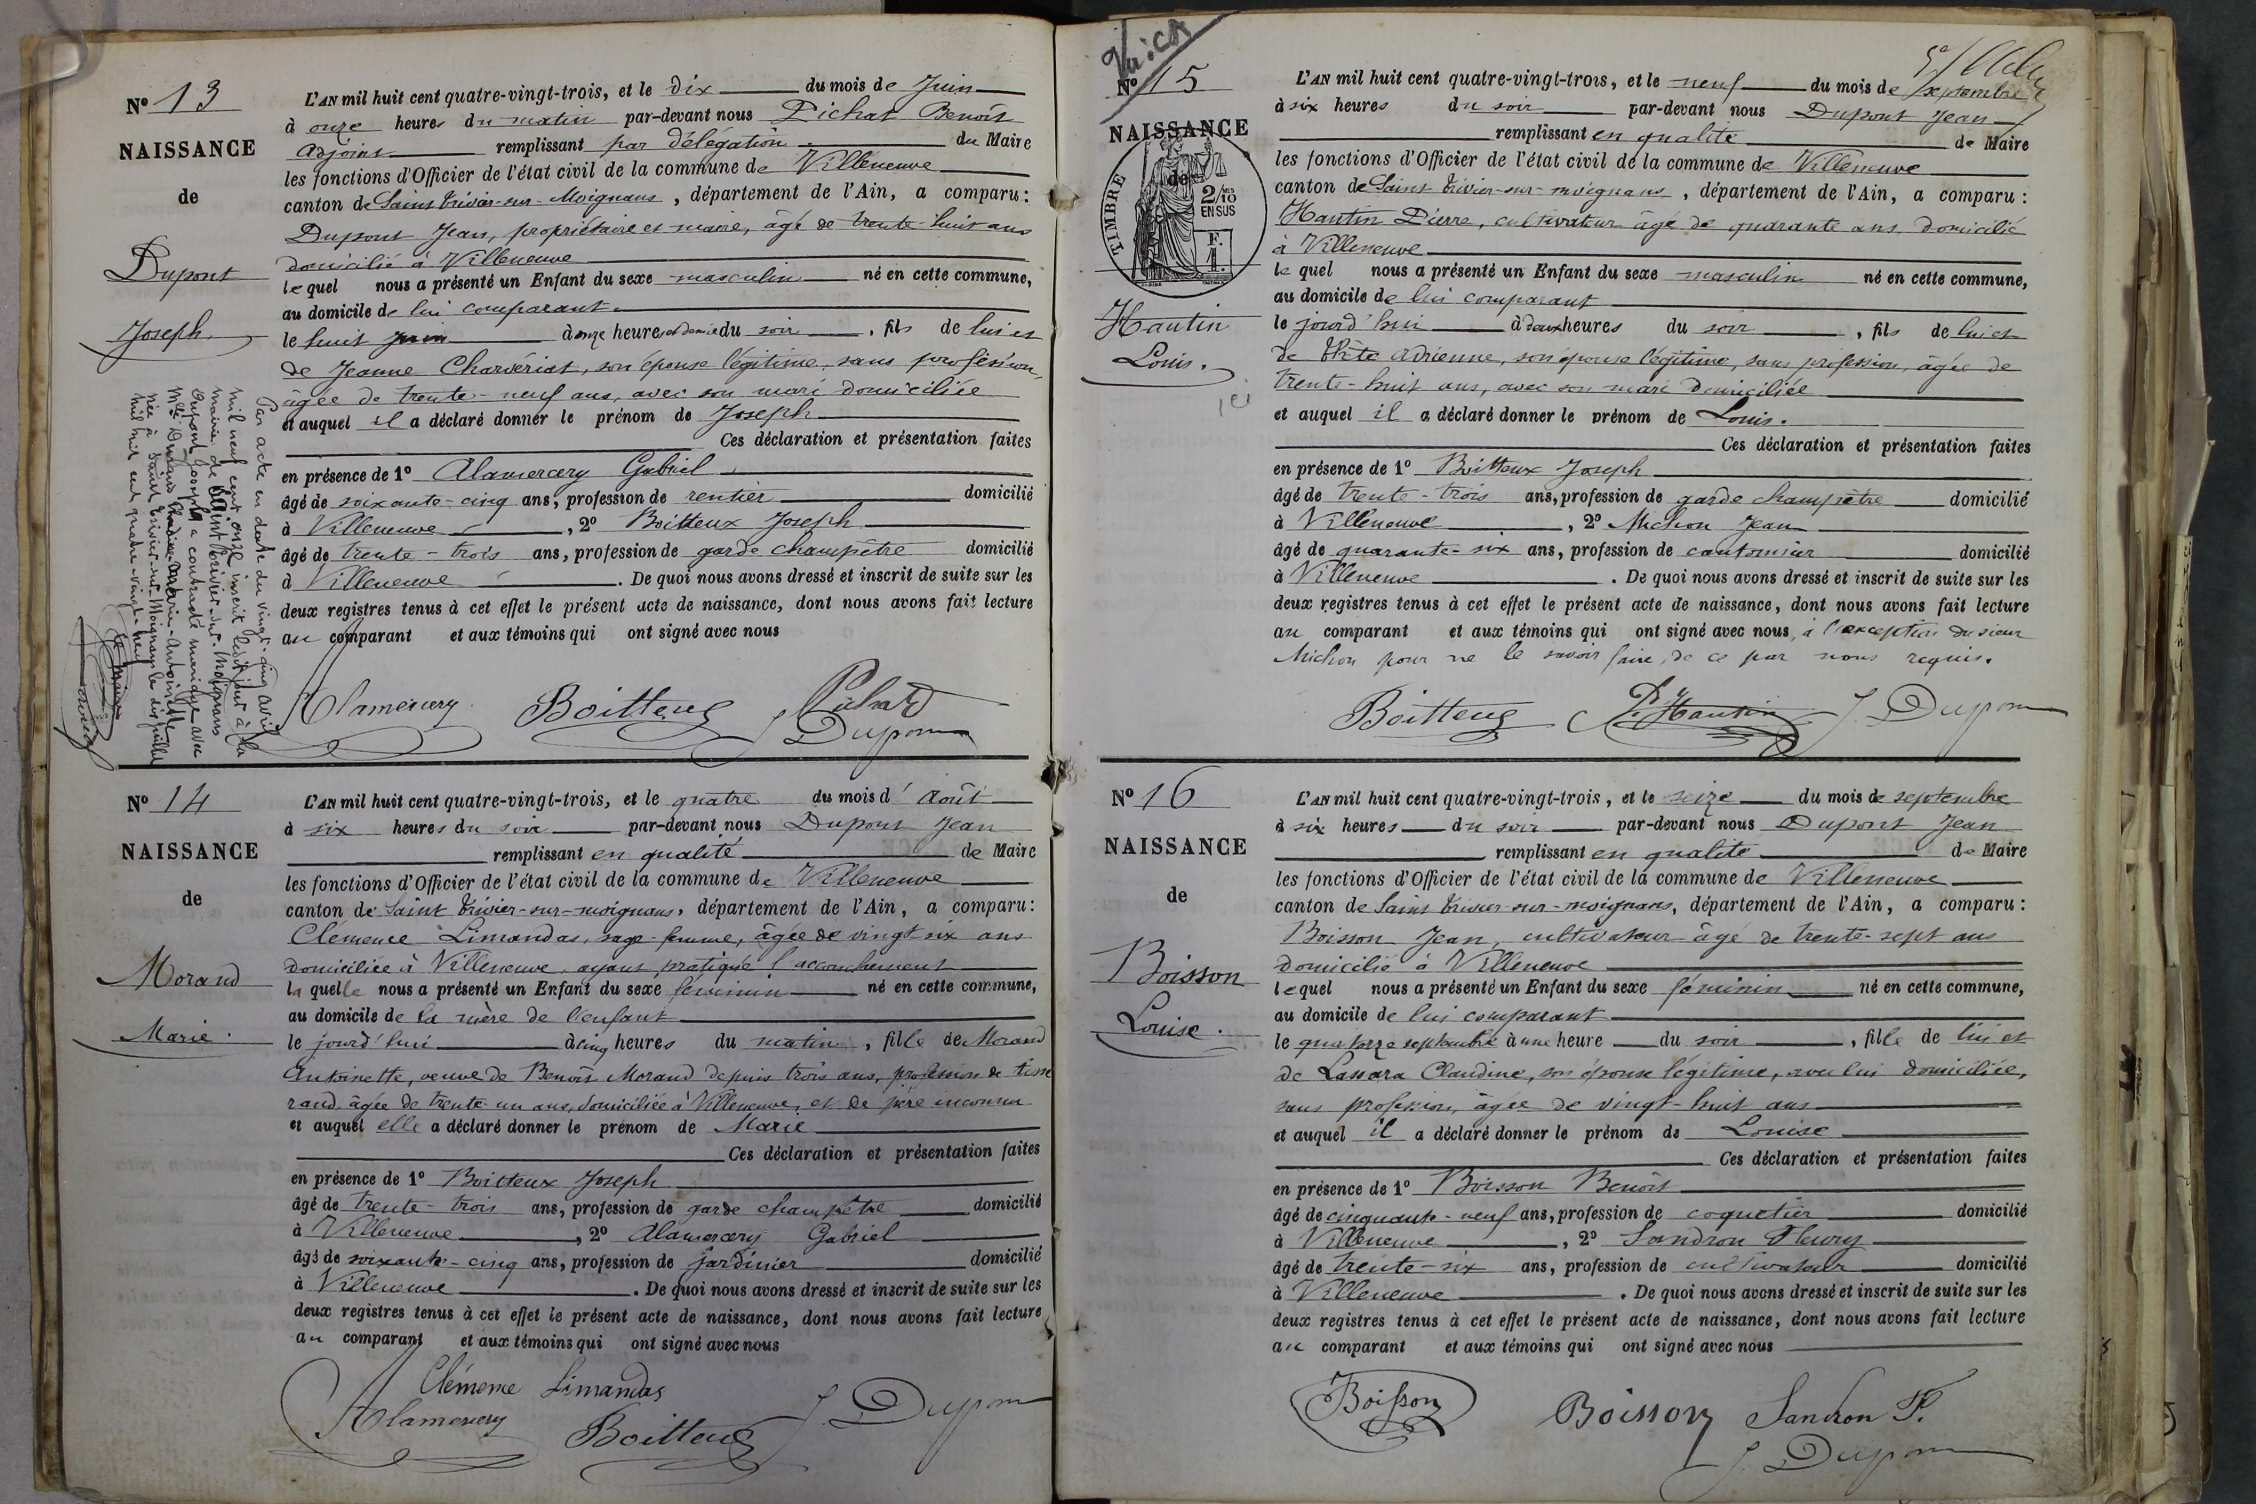 Nº 13
NAISSANCE
de
Dupont
Joseph.
L'AN mil huit cent quatre-vingt-trois, et le dix du mois de Juin
à onze heures du matin par-devant nous Pichat Benoît
adjoint remplissant par délégation du Maire
les fonctions d'Officier de l'état civil de la commune de Villeneuve
canton de Saint Trivier-sur-Moignans, département de l'Ain, a comparu :
Dupont Jean, propriétaire et maire, âgé de trente-huit ans
domicilié à Villeneuve
lequel nous a présenté un Enfant du sexe masculin né en cette commune,
au domicile de lui comparant
le huit juin à onze heures et demie du soir, fils de lui et
de Jeanne Charvériat, son épouse légitime, sans profession,
âgée de trente-neuf ans, avec son mari domiciliée
et auquel il a déclaré donner le prénom de Joseph
Ces déclaration et présentation faites
en présence de 1º Alamercery Gabriel
âgé de soixante-cinq ans, profession de rentier domicilié
à Villeneuve, 2º Boitteux Joseph
âgé de trente-trois ans, profession de garde champêtre domicilié
à Villeneuve. De quoi nous avons dressé et inscrit de suite sur les
deux registres tenus à cet effet le présent acte de naissance, dont nous avons fait lecture
au comparant et aux témoins qui ont signé avec nous
Alamercery Boitteux Pichat
J. Dupont
Par acte en date du vingt-cinq avril
mil neuf cent onze inscrit ledit jour à la
mairie de Saint Trivier-sur-Moignans
Dupont Joseph a contracté mariage avec
Mlle Durand Claudine-Marie-Antoinette
née à Saint Trivier-sur-Moignans le dix juillet
mil huit cent quatre-vingt-neuf
Le Maire
Nº 14
NAISSANCE
de
Morand
Marie.
L'AN mil huit cent quatre-vingt-trois, et le quatre du mois d'Août
à six heures du soir par-devant nous Dupont Jean
remplissant en qualité de Maire
les fonctions d'Officier de l'état civil de la commune de Villeneuve
canton de Saint Trivier-sur-moignans, département de l'Ain, a comparu :
Clémence Limandas, sage-femme, âgée de vingt-six ans
domiciliée à Villeneuve, ayant pratiqué l'accouchement
laquelle nous a présenté un Enfant du sexe féminin né en cette commune,
au domicile de la mère de l'enfant
le jourd'hui à cinq heures du matin, fille de Morand
Antoinette, veuve de Benoît Morand depuis trois ans, profession de tisse
rand, âgée de trente-un ans, domiciliée à Villeneuve, et de père inconnu
et auquel elle a déclaré donner le prénom de Marie
Ces déclaration et présentation faites
en présence de 1º Boitteux Joseph
âgé de trente-trois ans, profession de garde champêtre domicilié
à Villeneuve, 2º Alamercery Gabriel
âgé de soixante-cinq ans, profession de jardinier domicilié
à Villeneuve. De quoi nous avons dressé et inscrit de suite sur les
deux registres tenus à cet effet le présent acte de naissance, dont nous avons fait lecture
au comparant et aux témoins qui ont signé avec nous
Clémence Limandas
Alamercery Boitteux J. Dupont
Nº 15
NAISSANCE
de
TIMBRE
2/10
EN SUS
F.
1.
Hautin
Louis.
ici
L'AN mil huit cent quatre-vingt-trois, et le neuf du mois de septembre
à six heures du soir par-devant nous Dupont Jean
remplissant en qualité de Maire
les fonctions d'Officier de l'état civil de la commune de Villeneuve
canton de Saint Trivier-sur-moignans, département de l'Ain, a comparu :
Hautin Pierre, cultivateur âgé de quarante ans, domicilié
à Villeneuve
lequel nous a présenté un Enfant du sexe masculin né en cette commune,
au domicile de lui comparant
le jourd'hui à deux heures du soir, fils de lui et
de Adrienne, son épouse légitime, sans profession, âgée de
trente-huit ans, avec son mari domiciliée
et auquel il a déclaré donner le prénom de Louis.
Ces déclaration et présentation faites
en présence de 1º Boitteux Joseph
âgé de trente-trois ans, profession de garde champêtre domicilié
à Villeneuve, 2º Michon Jean
âgé de quarante-six ans, profession de cantonnier domicilié
à Villeneuve. De quoi nous avons dressé et inscrit de suite sur les
deux registres tenus à cet effet le présent acte de naissance, dont nous avons fait lecture
au comparant et aux témoins qui ont signé avec nous, à l'exception du sieur
Michon pour ne le savoir faire, de ce par nous requis.
Boitteux P. Hautin J. Dupont
Nº 16
NAISSANCE
de
Boisson
Louise.
L'AN mil huit cent quatre-vingt-trois, et le seize du mois de septembre
à six heures du soir par-devant nous Dupont Jean
remplissant en qualité de Maire
les fonctions d'Officier de l'état civil de la commune de Villeneuve
canton de Saint Trivier-sur-moignans, département de l'Ain, a comparu :
Boisson Jean, cultivateur âgé de trente-sept ans
domicilié à Villeneuve
lequel nous a présenté un Enfant du sexe féminin né en cette commune,
au domicile de lui comparant
le quatorze septembre à une heure du soir, fille de lui et
de Lassara Claudine, son épouse légitime, avec lui domiciliée,
sans profession, âgée de vingt-huit ans
et auquel il a déclaré donner le prénom de Louise
Ces déclaration et présentation faites
en présence de 1º Boisson Benoît
âgé de cinquante-neuf ans, profession de coquetier domicilié
à Villeneuve, 2º Sandron Fleury
âgé de trente-six ans, profession de cultivateur domicilié
à Villeneuve. De quoi nous avons dressé et inscrit de suite sur les
deux registres tenus à cet effet le présent acte de naissance, dont nous avons fait lecture
au comparant et aux témoins qui ont signé avec nous
Boisson Boisson Sandron F.
J. Dupont